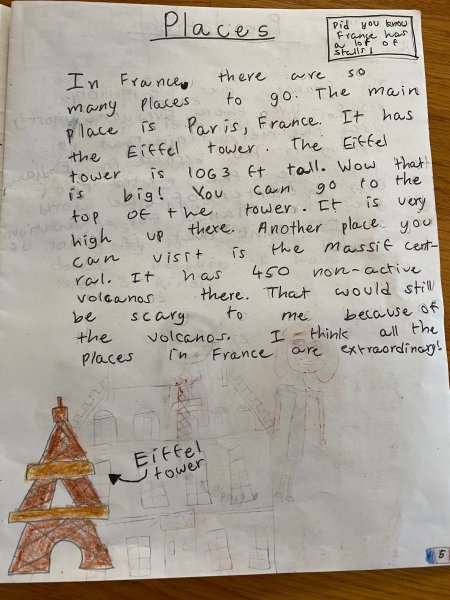 Places
Did you know
France has
a lot of
stalls!
In France, there are so
many places to go. The main
place is Paris, France. It has
the Eiffel tower. The Eiffel
tower is 1063 ft tall. Wow that
is big! You can go to the
top of the tower. It is very
high up there. Another place you
can visit is the massif cent-
ral. It has 450 non-active
volcanos there. That would still
be scary to me because of
the volcanos. I think all the
places in France are extraordinary!
Eiffel
tower
5